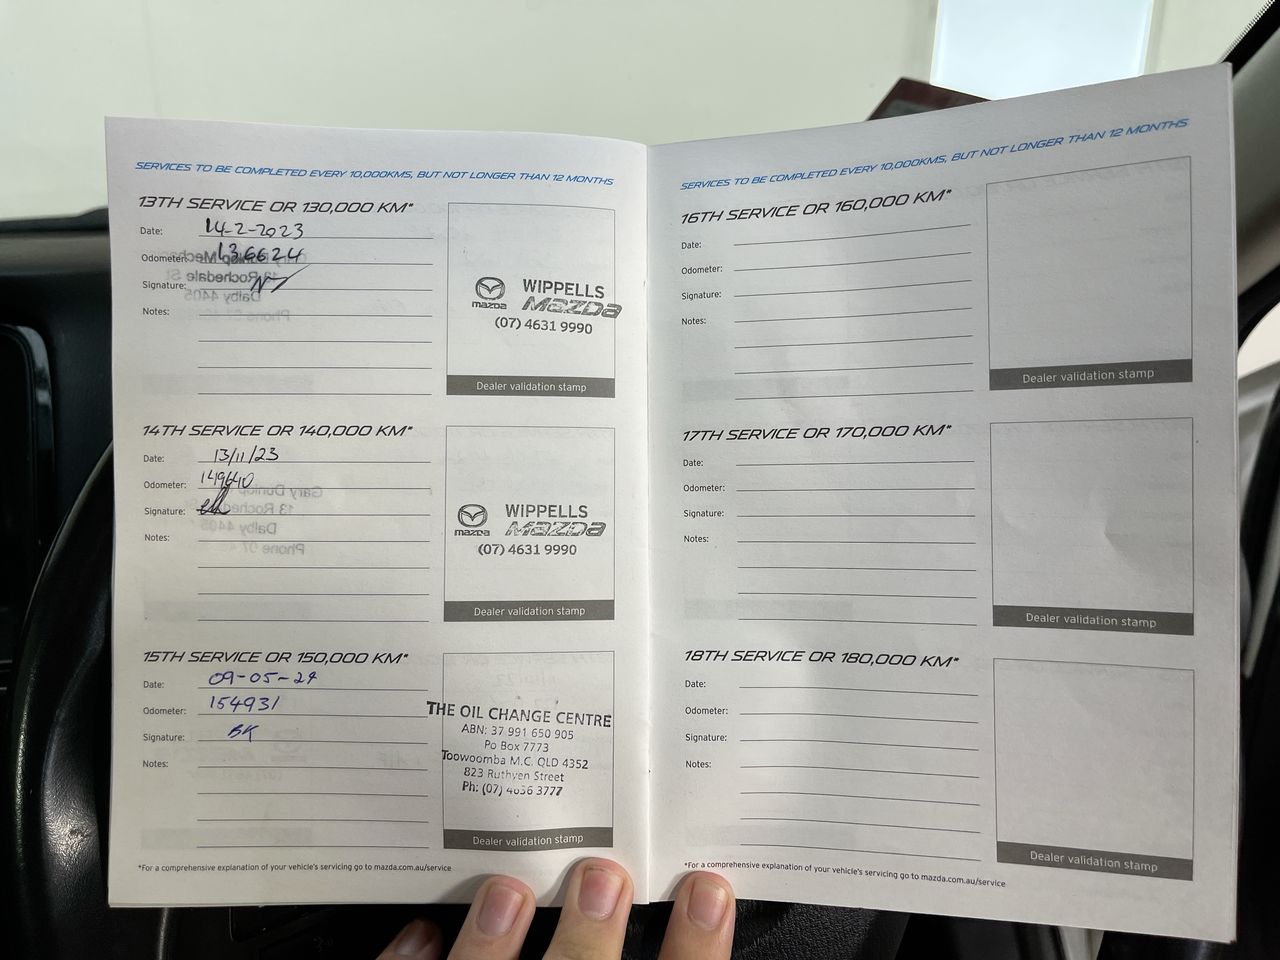 SERVICES TO BE COMPLETED EVERY 10,000KMS, BUT NOT LONGER THAN 12 MONTHS
13TH SERVICE OR 130,000 KM*
Date: 14-2-2023
Odometer: 136624
Signature:
Notes:
WIPPELLS
mazda mazda
(07) 4631 9990
Dealer validation stamp
14TH SERVICE OR 140,000 KM*
Date: 13/11/23
Odometer: 149640
Signature:
Notes:
WIPPELLS
mazda mazda
(07) 4631 9990
Dealer validation stamp
15TH SERVICE OR 150,000 KM*
Date: 09-05-24
Odometer: 154931
Signature: BK
Notes:
THE OIL CHANGE CENTRE
ABN: 37 991 650 905
Po Box 7773
Toowoomba M.C. QLD 4352
823 Ruthven Street
Ph: (07) 4636 3777
Dealer validation stamp
*For a comprehensive explanation of your vehicle's servicing go to mazda.com.au/service
SERVICES TO BE COMPLETED EVERY 10,000KMS, BUT NOT LONGER THAN 12 MONTHS
16TH SERVICE OR 160,000 KM*
Date:
Odometer:
Signature:
Notes:
Dealer validation stamp
17TH SERVICE OR 170,000 KM*
Date:
Odometer:
Signature:
Notes:
Dealer validation stamp
18TH SERVICE OR 180,000 KM*
Date:
Odometer:
Signature:
Notes:
Dealer validation stamp
*For a comprehensive explanation of your vehicle's servicing go to mazda.com.au/service